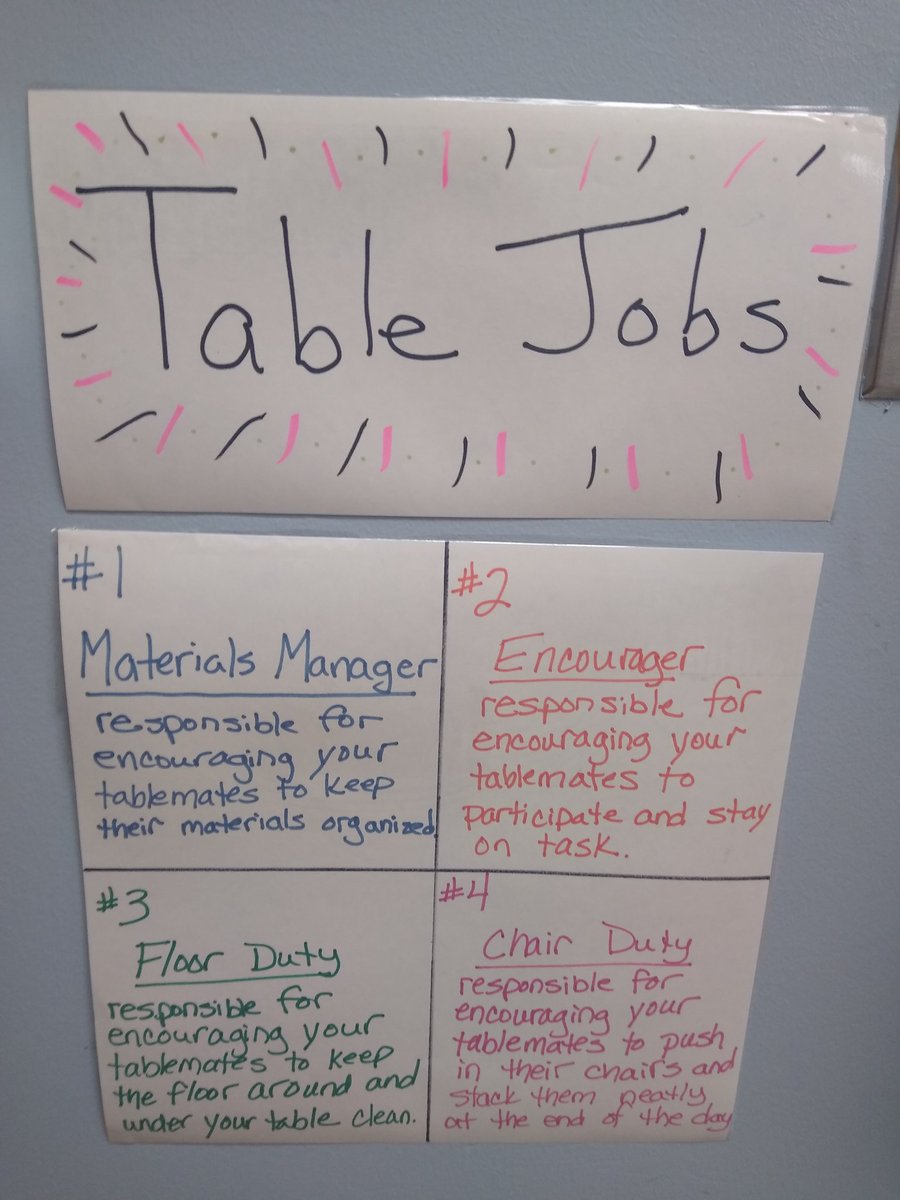 Table Jobs
#1
Materials Manager
responsible for
encouraging your
tablemates to keep
their materials organized.
#2
Encourager
responsible for
encouraging your
tablemates to
participate and stay
on task.
#3
Floor Duty
responsible for
encouraging your
tablemates to keep
the floor around and
under your table clean.
#4
Chair Duty
responsible for
encouraging your
tablemates to push
in their chairs and
stack them neatly
at the end of the day